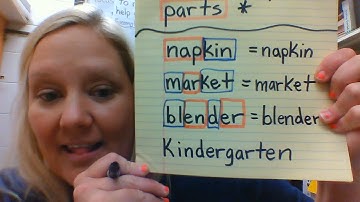 parts *
napkin = napkin
market = market
blender = blender
Kindergarten
help